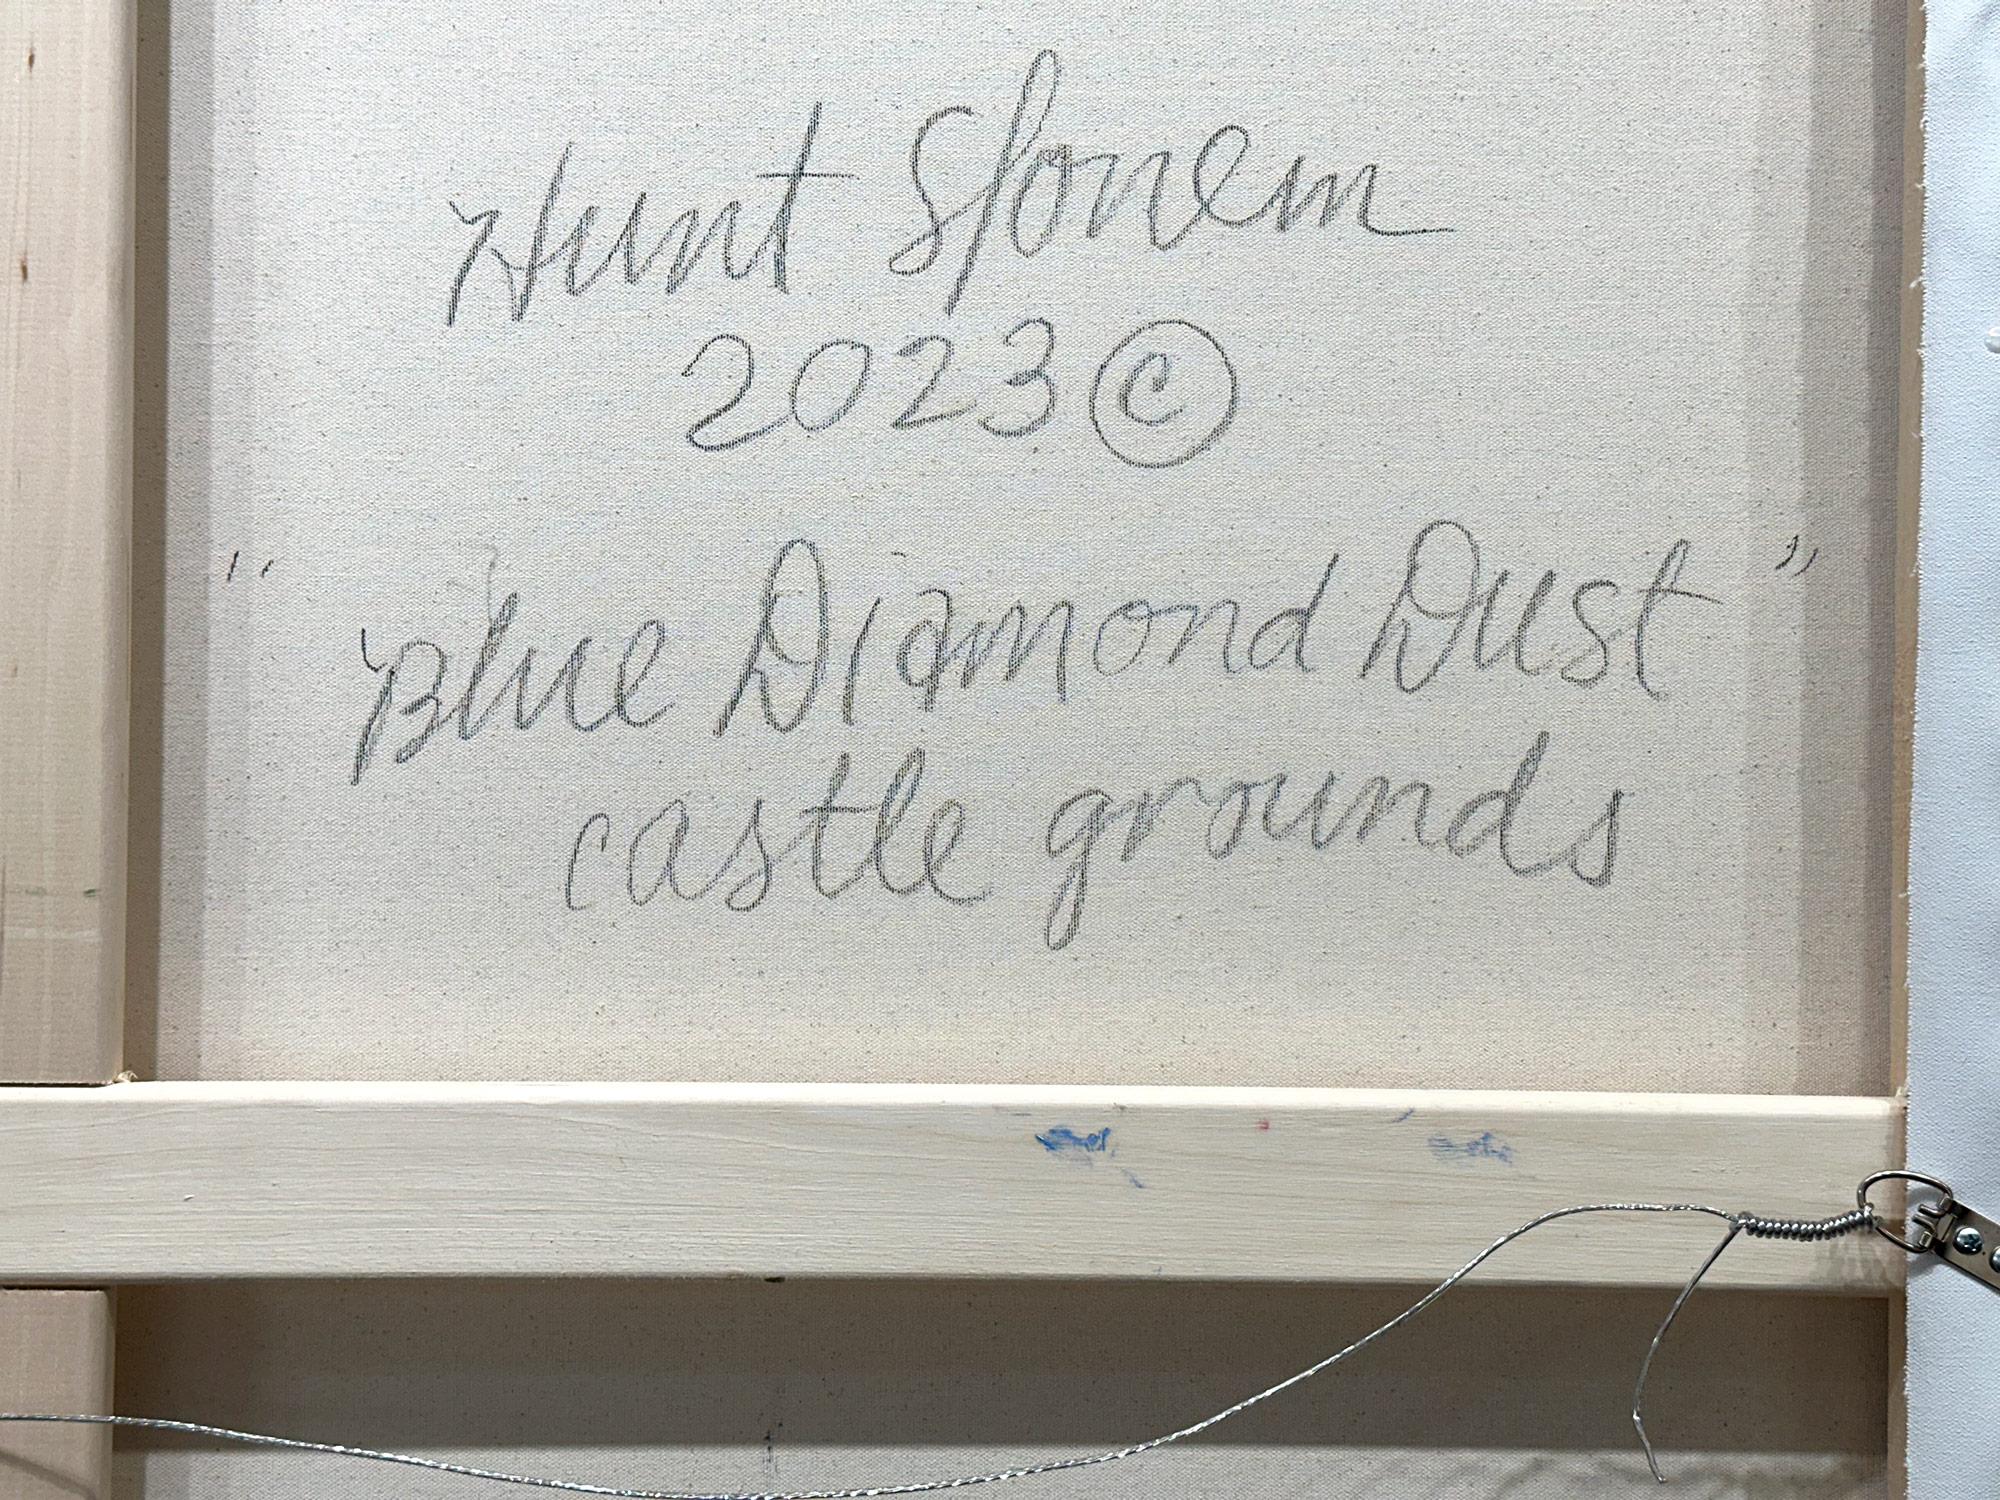 Hunt Slonem
2023 ©
"Blue Diamond Dust"
castle grounds